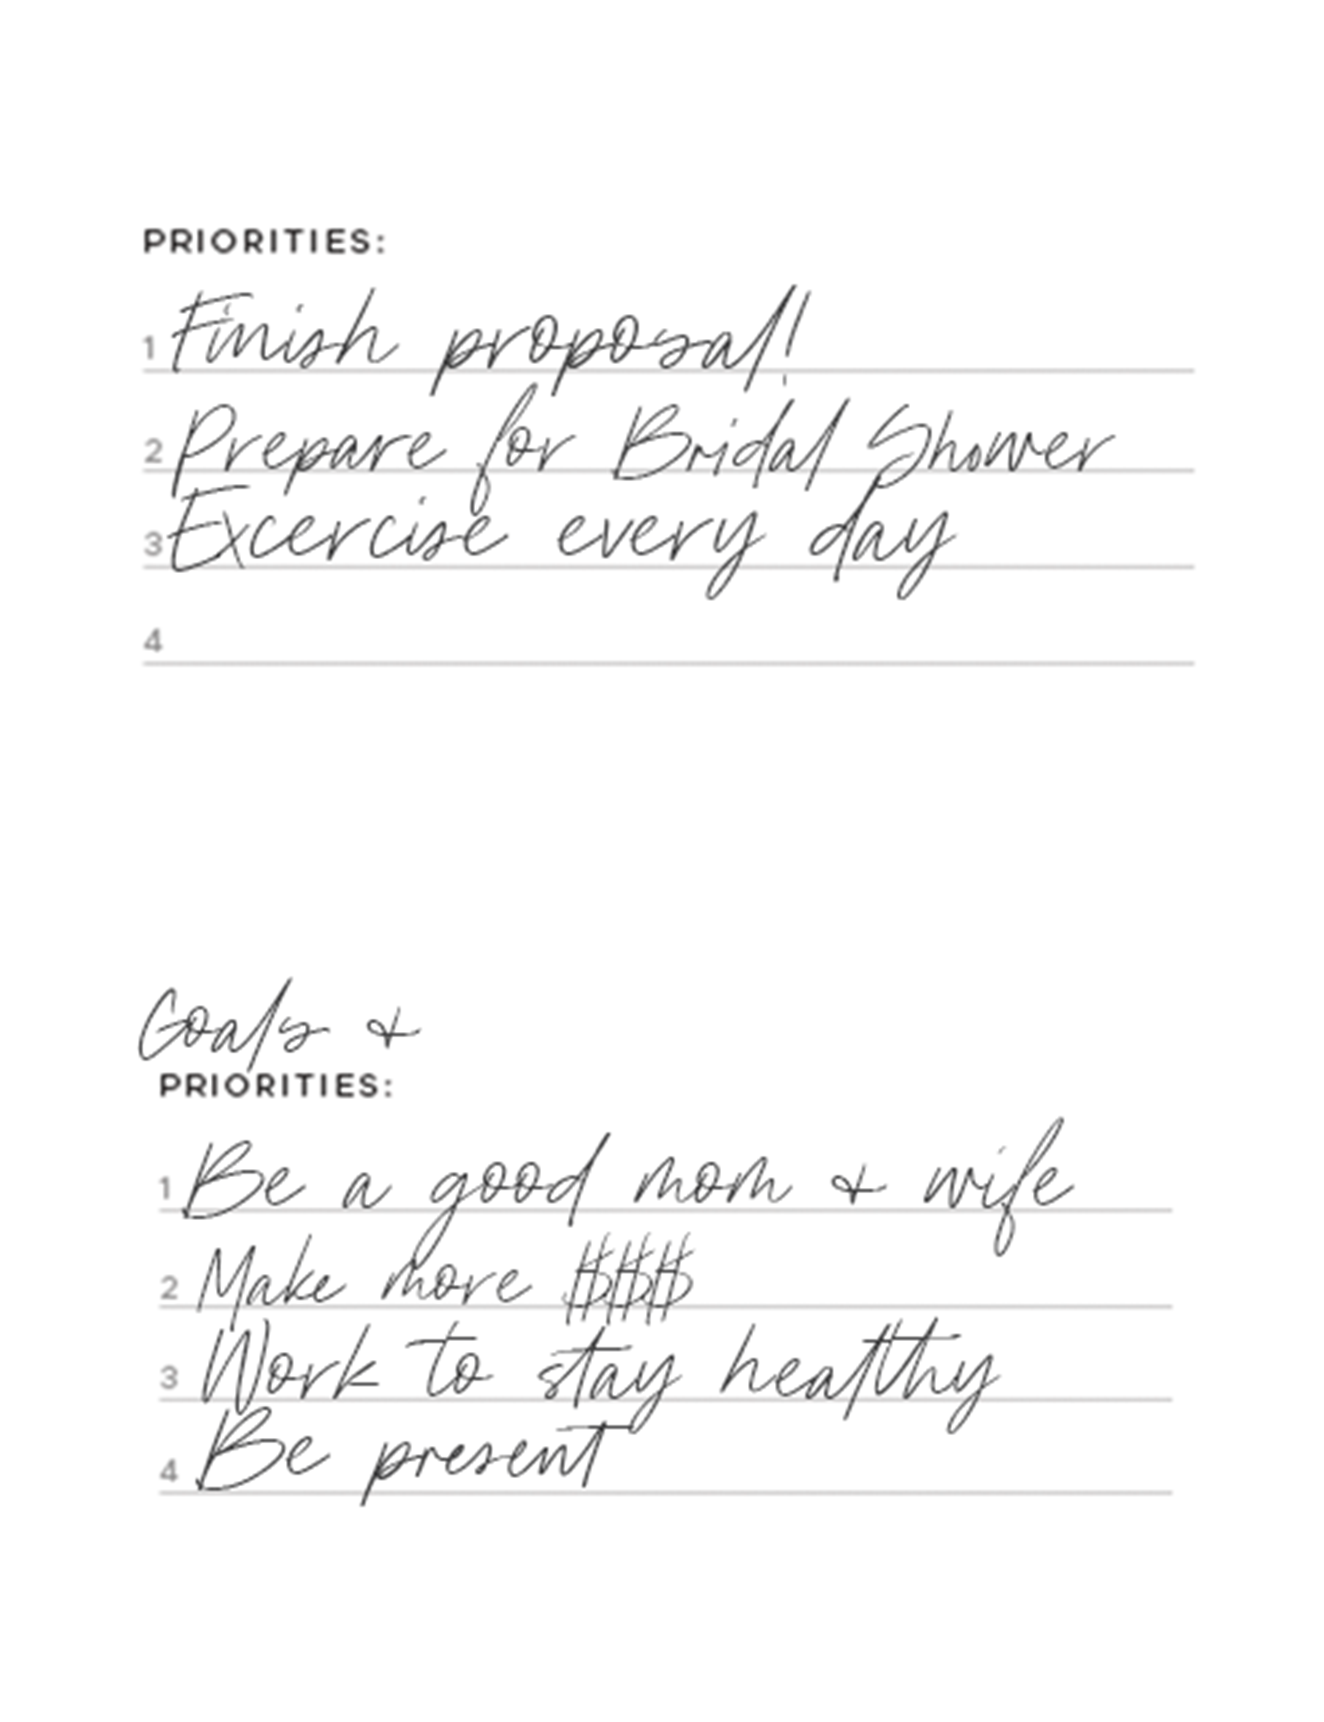 PRIORITIES:
1 Finish proposal!
2 Prepare for Bridal Shower
3 Excercise every day
4
Goals &
PRIORITIES:
1 Be a good mom & wife
2 Make more $$$
3 Work to stay healthy
4 Be present